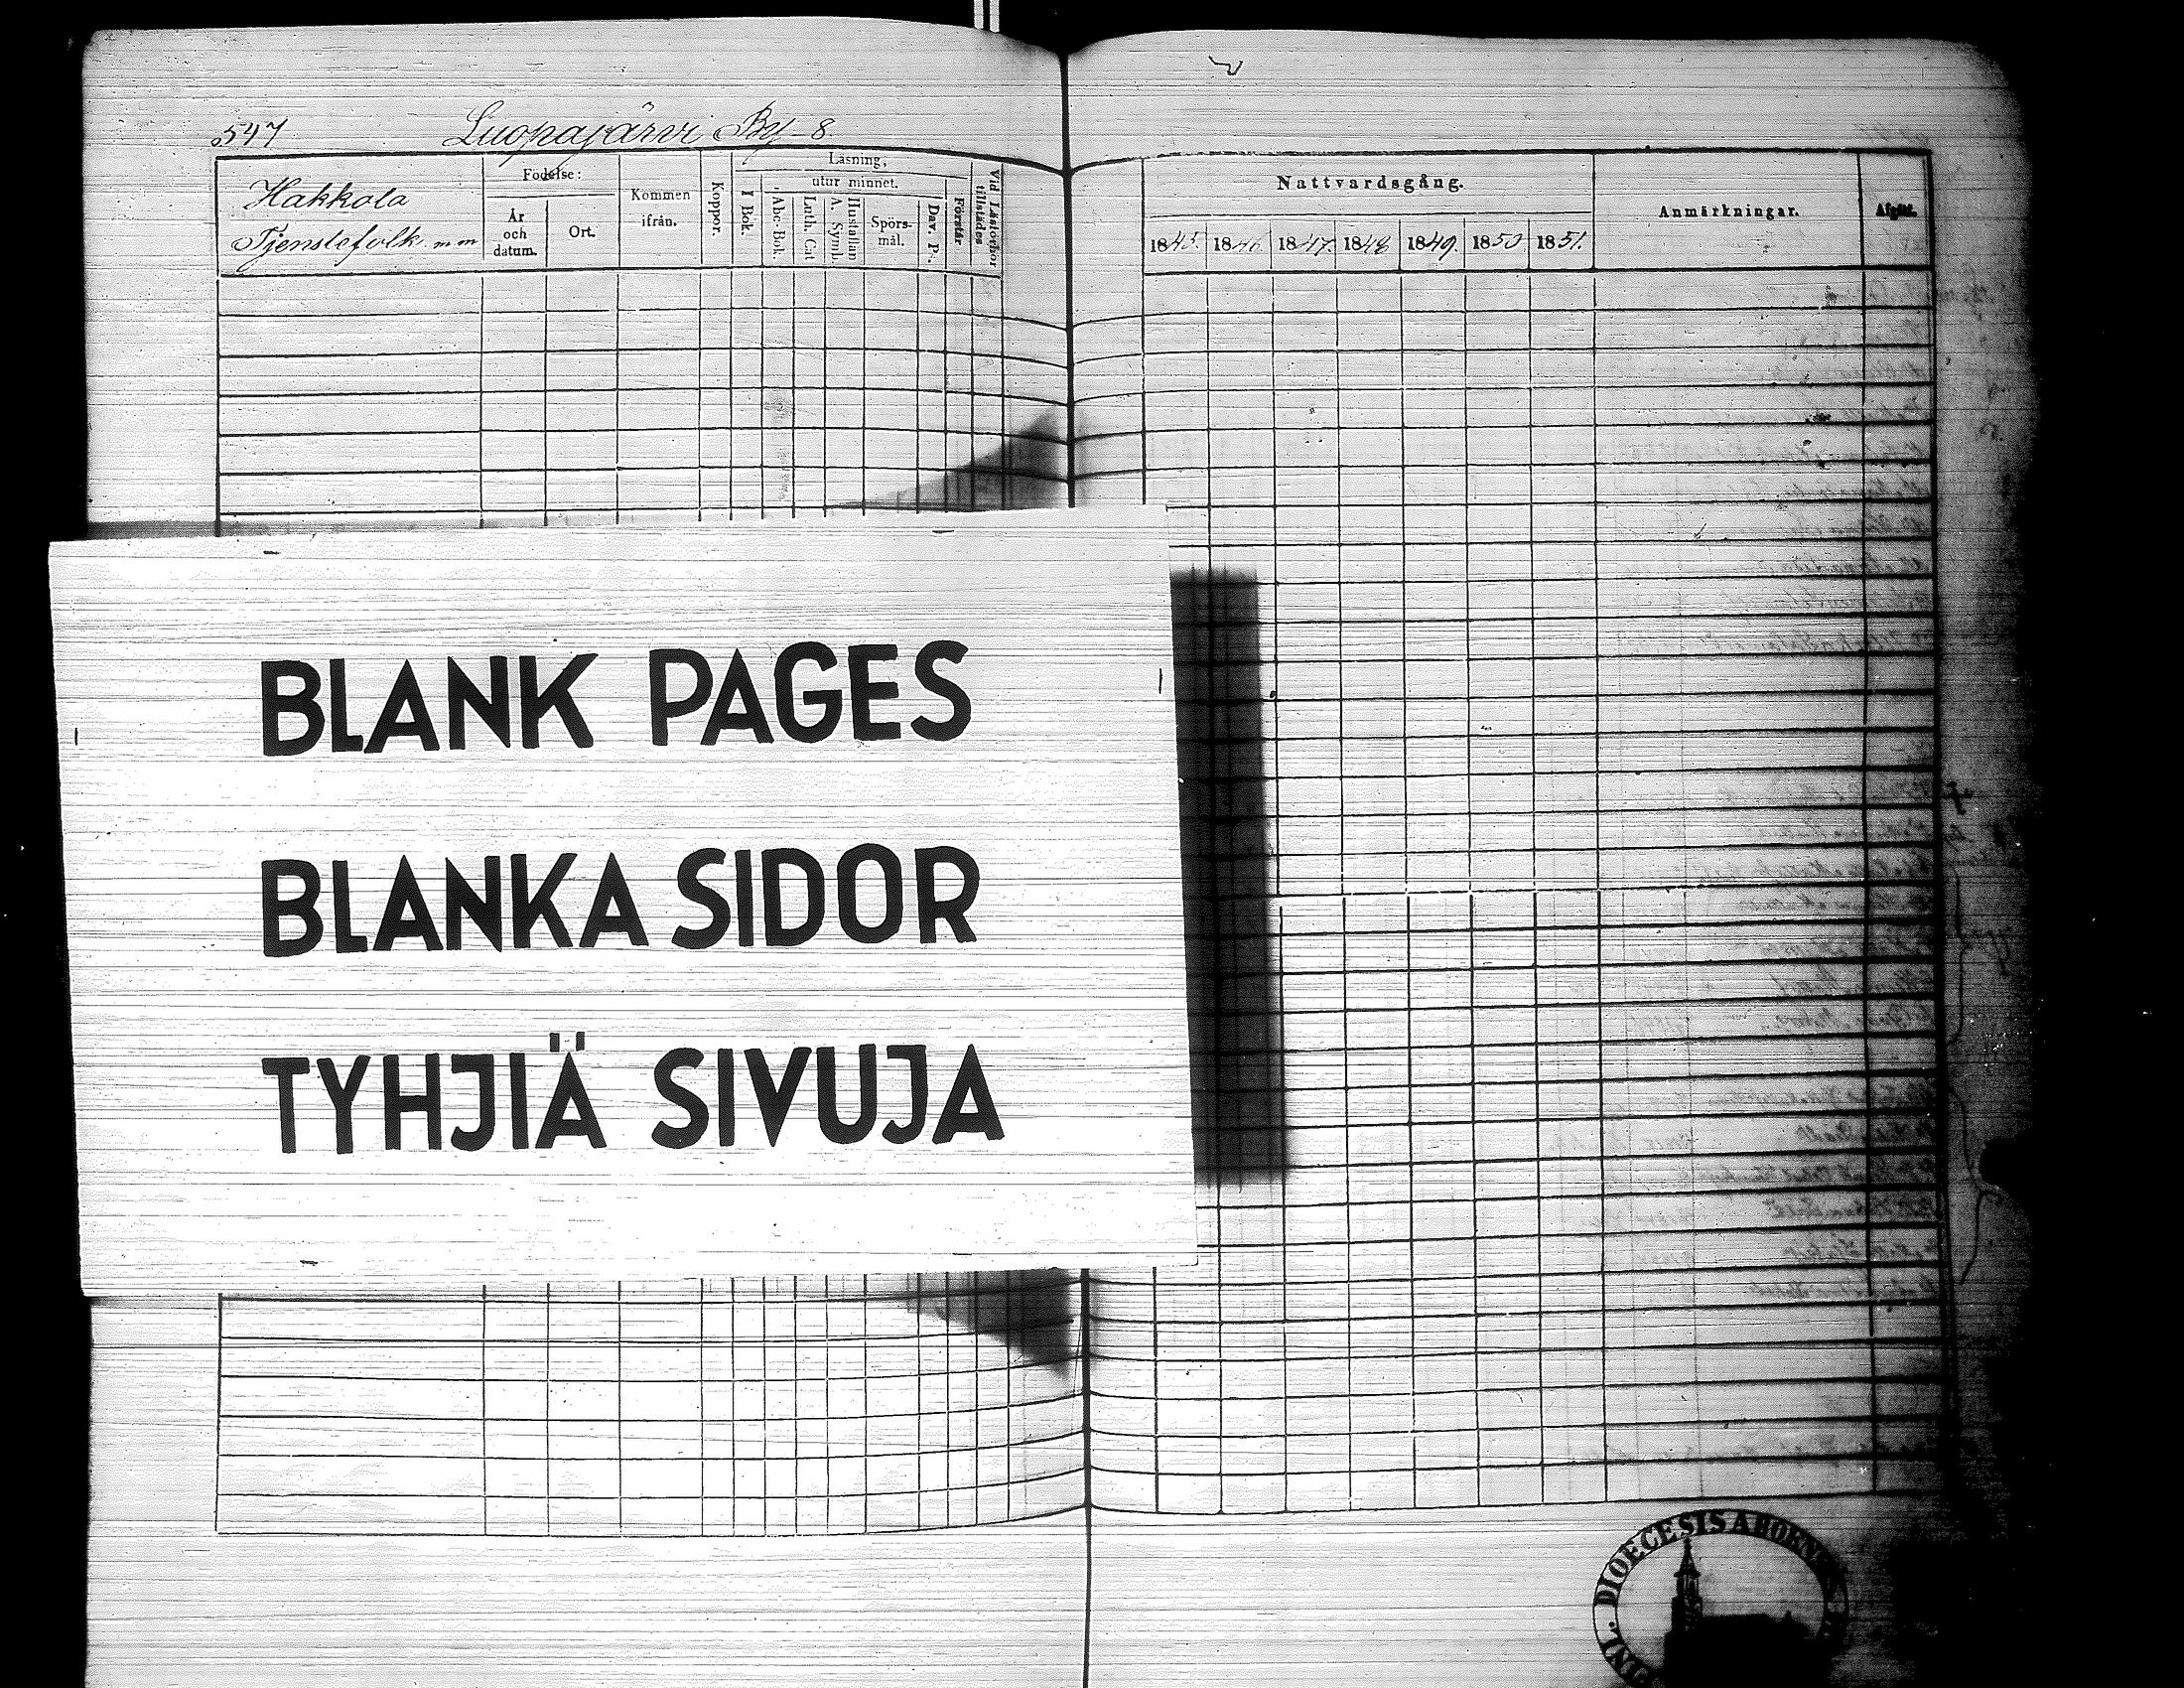 547 Luopajärvi By 8.
Hakkola
Tjenstefolk m m
Födelse:
År
och
datum.
Ort.
Kommen
ifrån.
Koppor.
Läsning,
I Bok.
utur minnet.
Abc-Bok.
Luth. Cat
Hustaflan
A. Symb.
Spörs-
mål.
Dav. Ps.
Förstår
Vid Läsförhör
tillstädes
Nattvardsgång.
1845. 1846. 1847. 1848 1849. 1850 1851.
Anmärkningar.
BLANK PAGES
BLANKA SIDOR
TYHJIÄ SIVUJA
DIOECESIS ABOENSIS